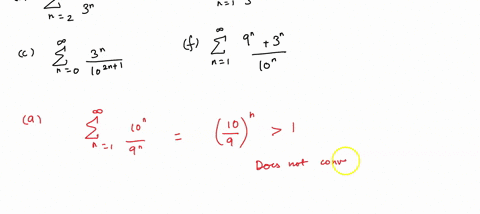 n=2 3ⁿ
n=1
(c) ∞ Σ n=0 3ⁿ / 10²ⁿ⁺¹
(f) ∞ Σ n=1 9ⁿ + 3ⁿ / 10ⁿ
(a) ∞ Σ n=1 10ⁿ / 9ⁿ = (10/9)ⁿ > 1
Does not conv